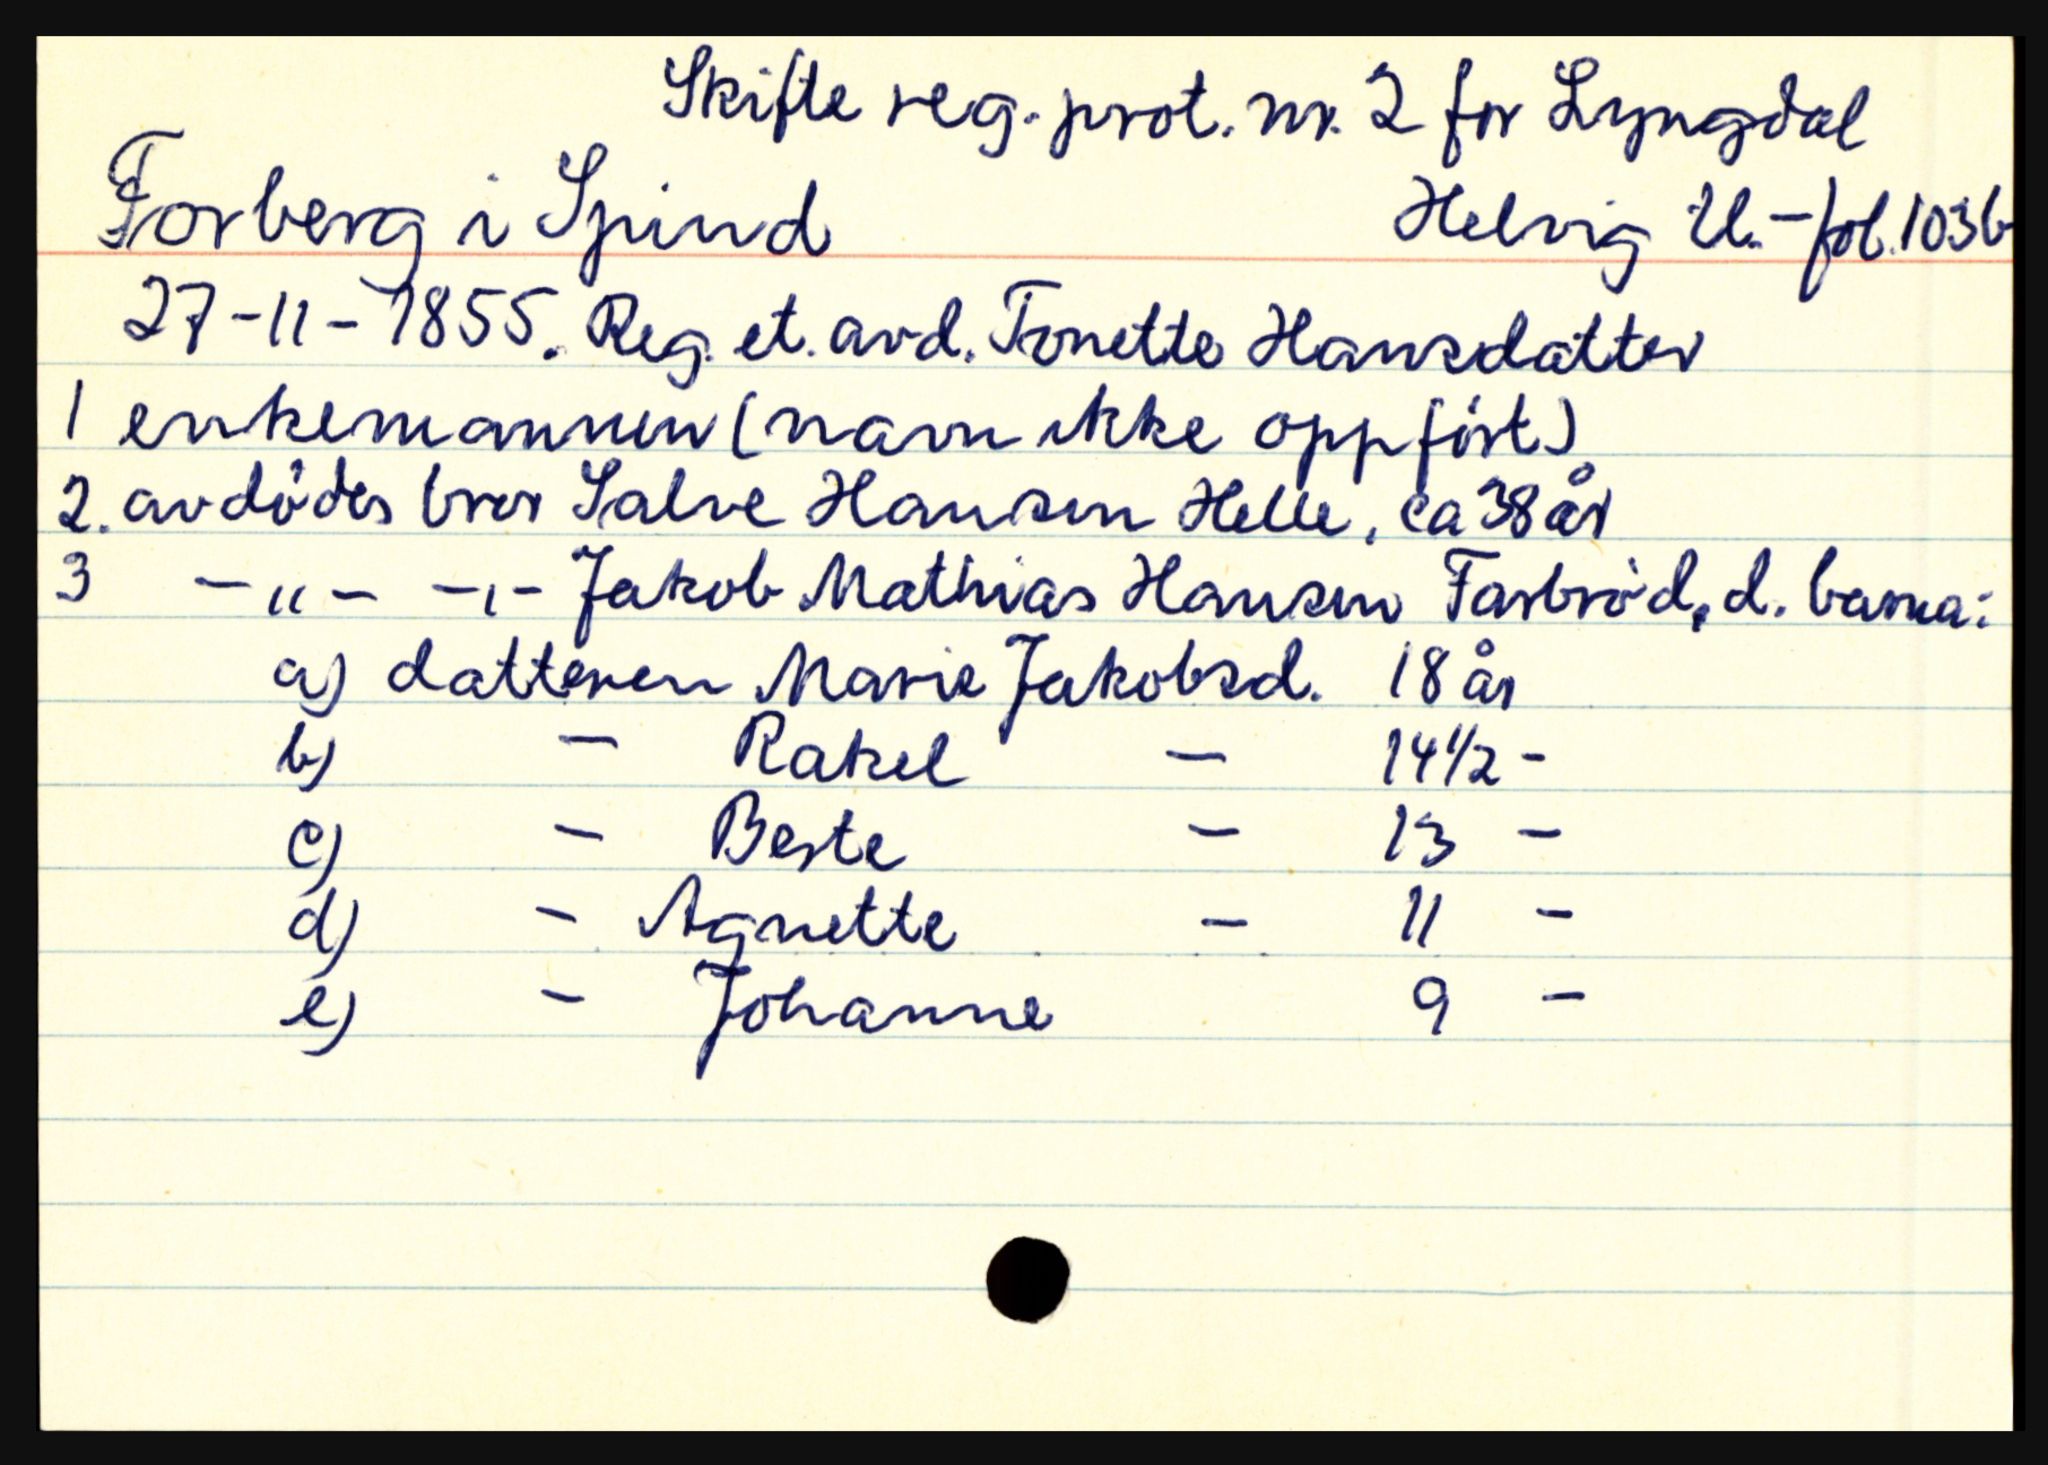 Skifte reg. prot. nr. 2 for Lyngdal
Forberg i Spind Helvig U. - fol. 103b
27-11-1855. Reg. et. avd. Tonette Hansdatter
1 enkemannen (navn ikke oppført)
2. avdødes bror Salve Hansen Helle, ca 38 år
3 -"- -"- Jakob Mathias Hansen Farbrød, d. barna:
a) datteren Marie Jakobsd. 18 år
b) - Rakel - 14 1/2 -
c) - Berte - 13 -
d) - Agnette - 11 -
e) - Johanne 9 -